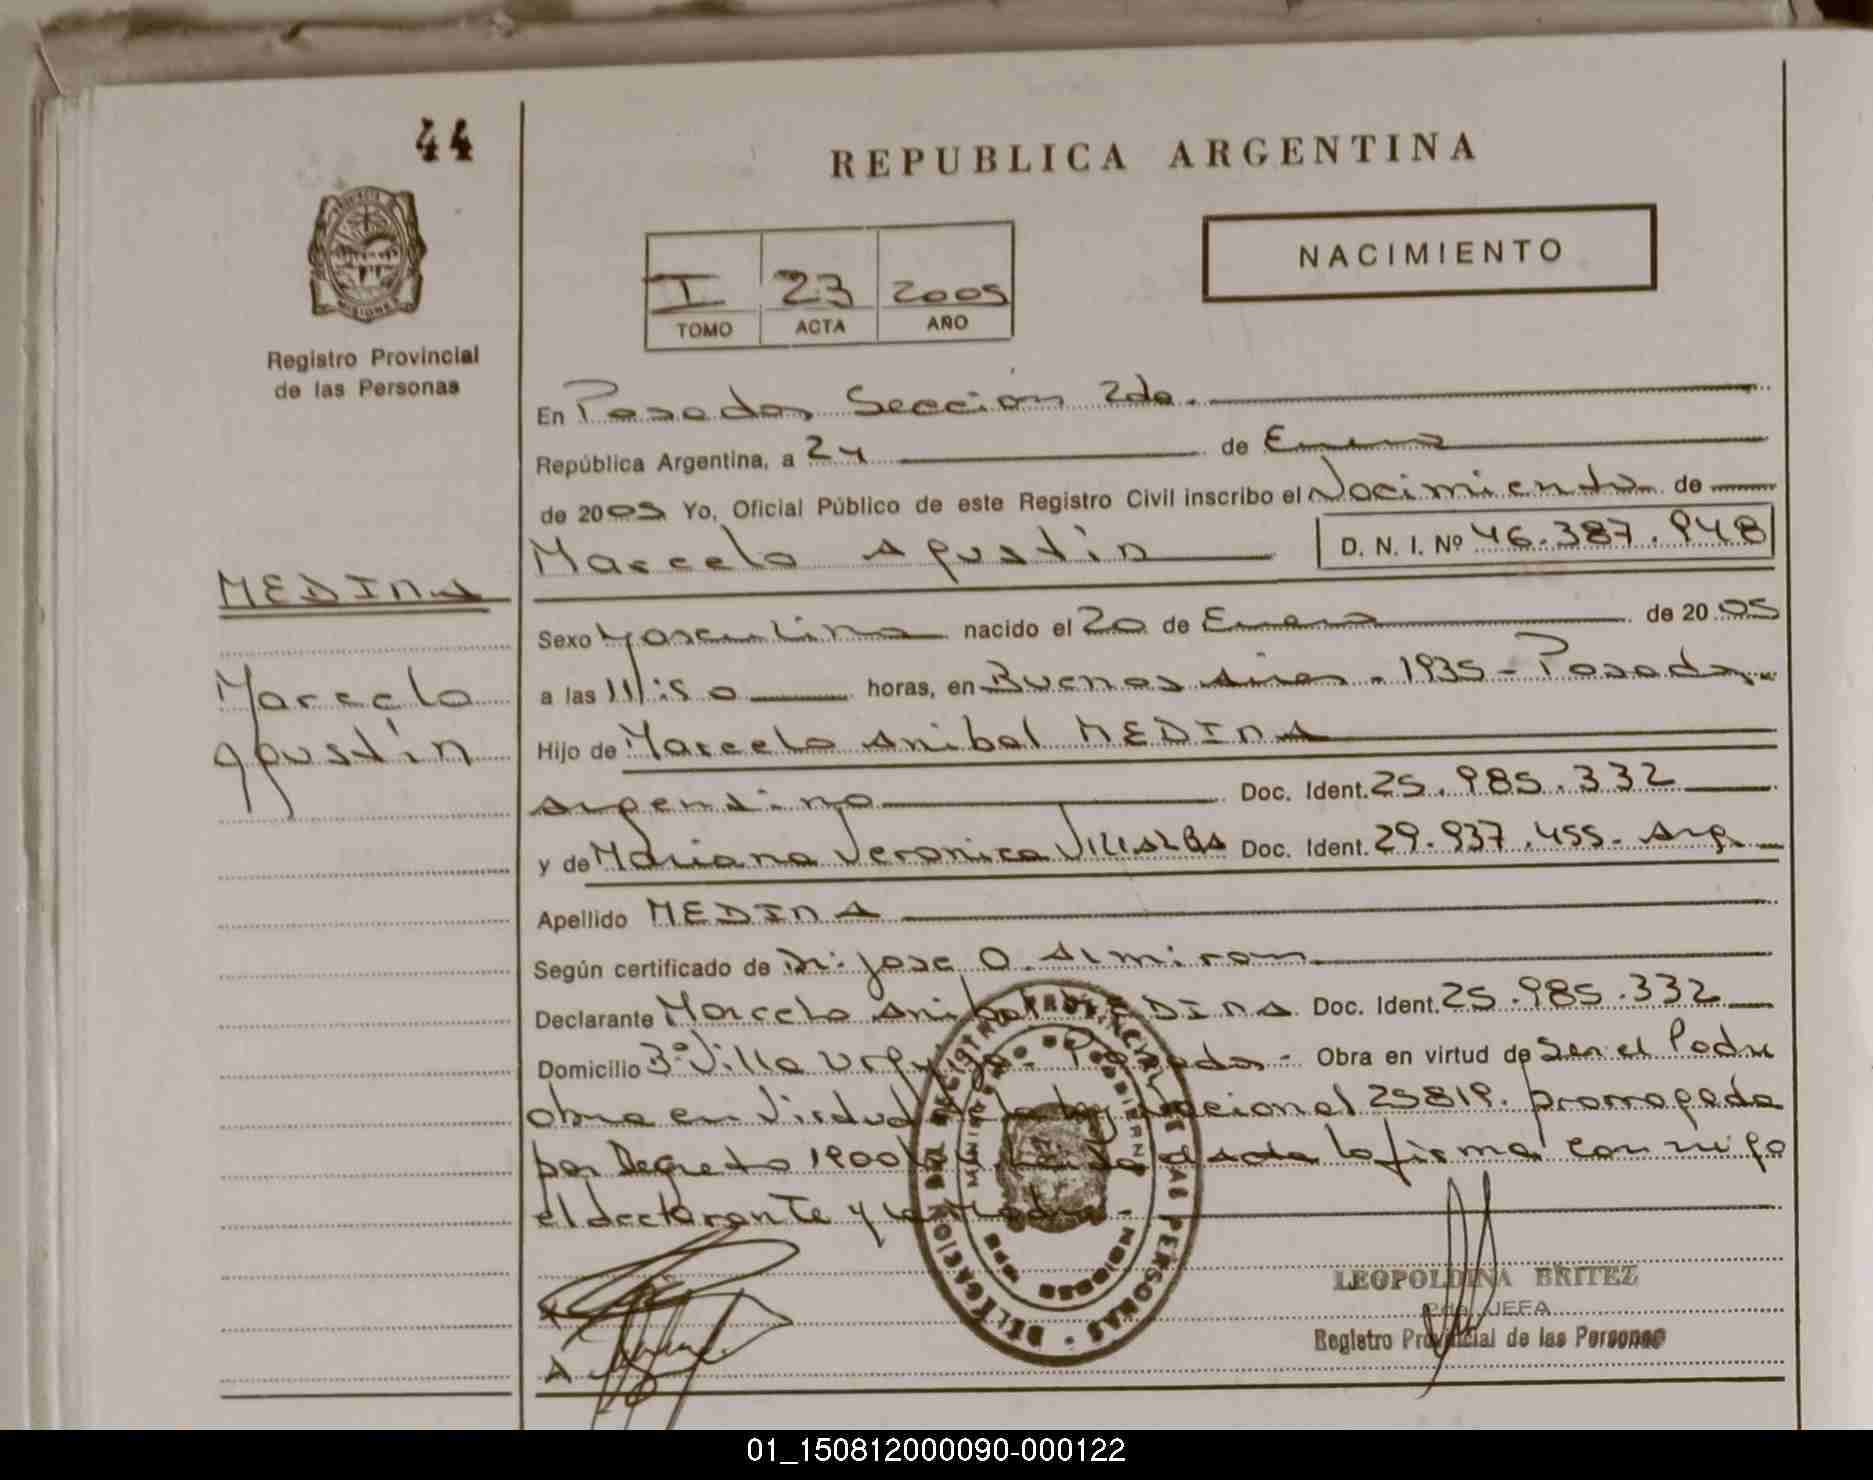 44
REPUBLICA ARGENTINA
NACIMIENTO
I 23 2005
TOMO ACTA AÑO
Registro Provincial
de las Personas
En Posadas Sección 2da.
República Argentina, a 24 de Enero
de 2005 Yo, Oficial Público de este Registro Civil inscribo el Nacimiento de
Marcelo Agustín D. N. I. Nº 46.387.948
MEDINA
Marcelo
Agustín
Sexo Masculino nacido el 20 de Enero de 2005
a las 11:50 horas, en Buenos Aires. 1935 - Posadas
Hijo de Marcelo Anibal MEDINA
Argentino Doc. Ident. 25.985.332
y de Mariana Veronica VILLALBA Doc. Ident. 29.937.455 - Arg.
Apellido MEDINA
Según certificado de Dr. Jose O. Almiron
Declarante Marcelo Anibal MEDINA Doc. Ident. 25.985.332
Domicilio Bº Villa Urquiza - Posadas - Obra en virtud de Ser el Padre
obra en virtud de la ley Nacional 25819. prorrogada
por Decreto el acta la firma conmigo
el declarante y la Madre -
DELEGACION DEL REGISTRO PROVINCIAL DE LAS PERSONAS
MINISTERIO DE GOBIERNO
MISIONES
LEOPOLDINA BRITEZ
JEFA
Registro Provincial de las Personas
01_150812000090-000122